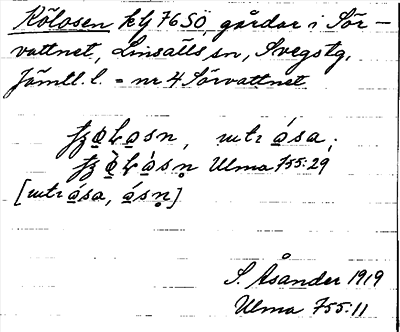 Kölosen kbl 76 SÖ, gårdar i Sör-
vattnet, Linsälls sn, Svegs tg,
Jämtl. l. = nr 4 Sörvattnet
åsa,
Ulma 755:29
[åsa, åsn]
S. Åsander 1919
Ulma 755:11